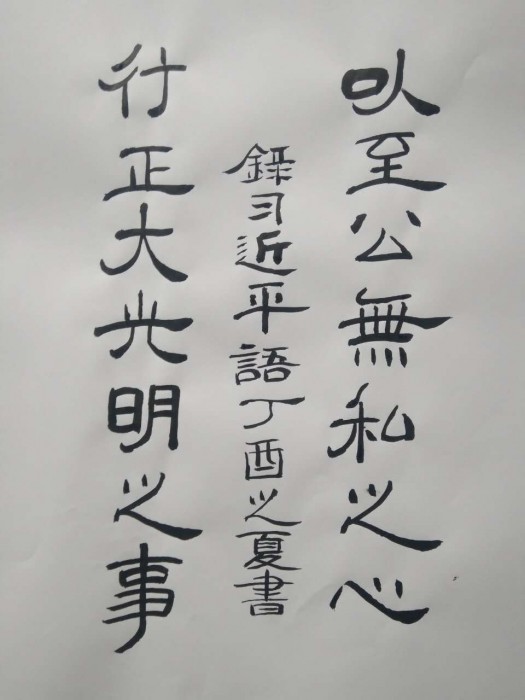 以至公無私之心
行正大光明之事
錄习近平語丁酉之夏書